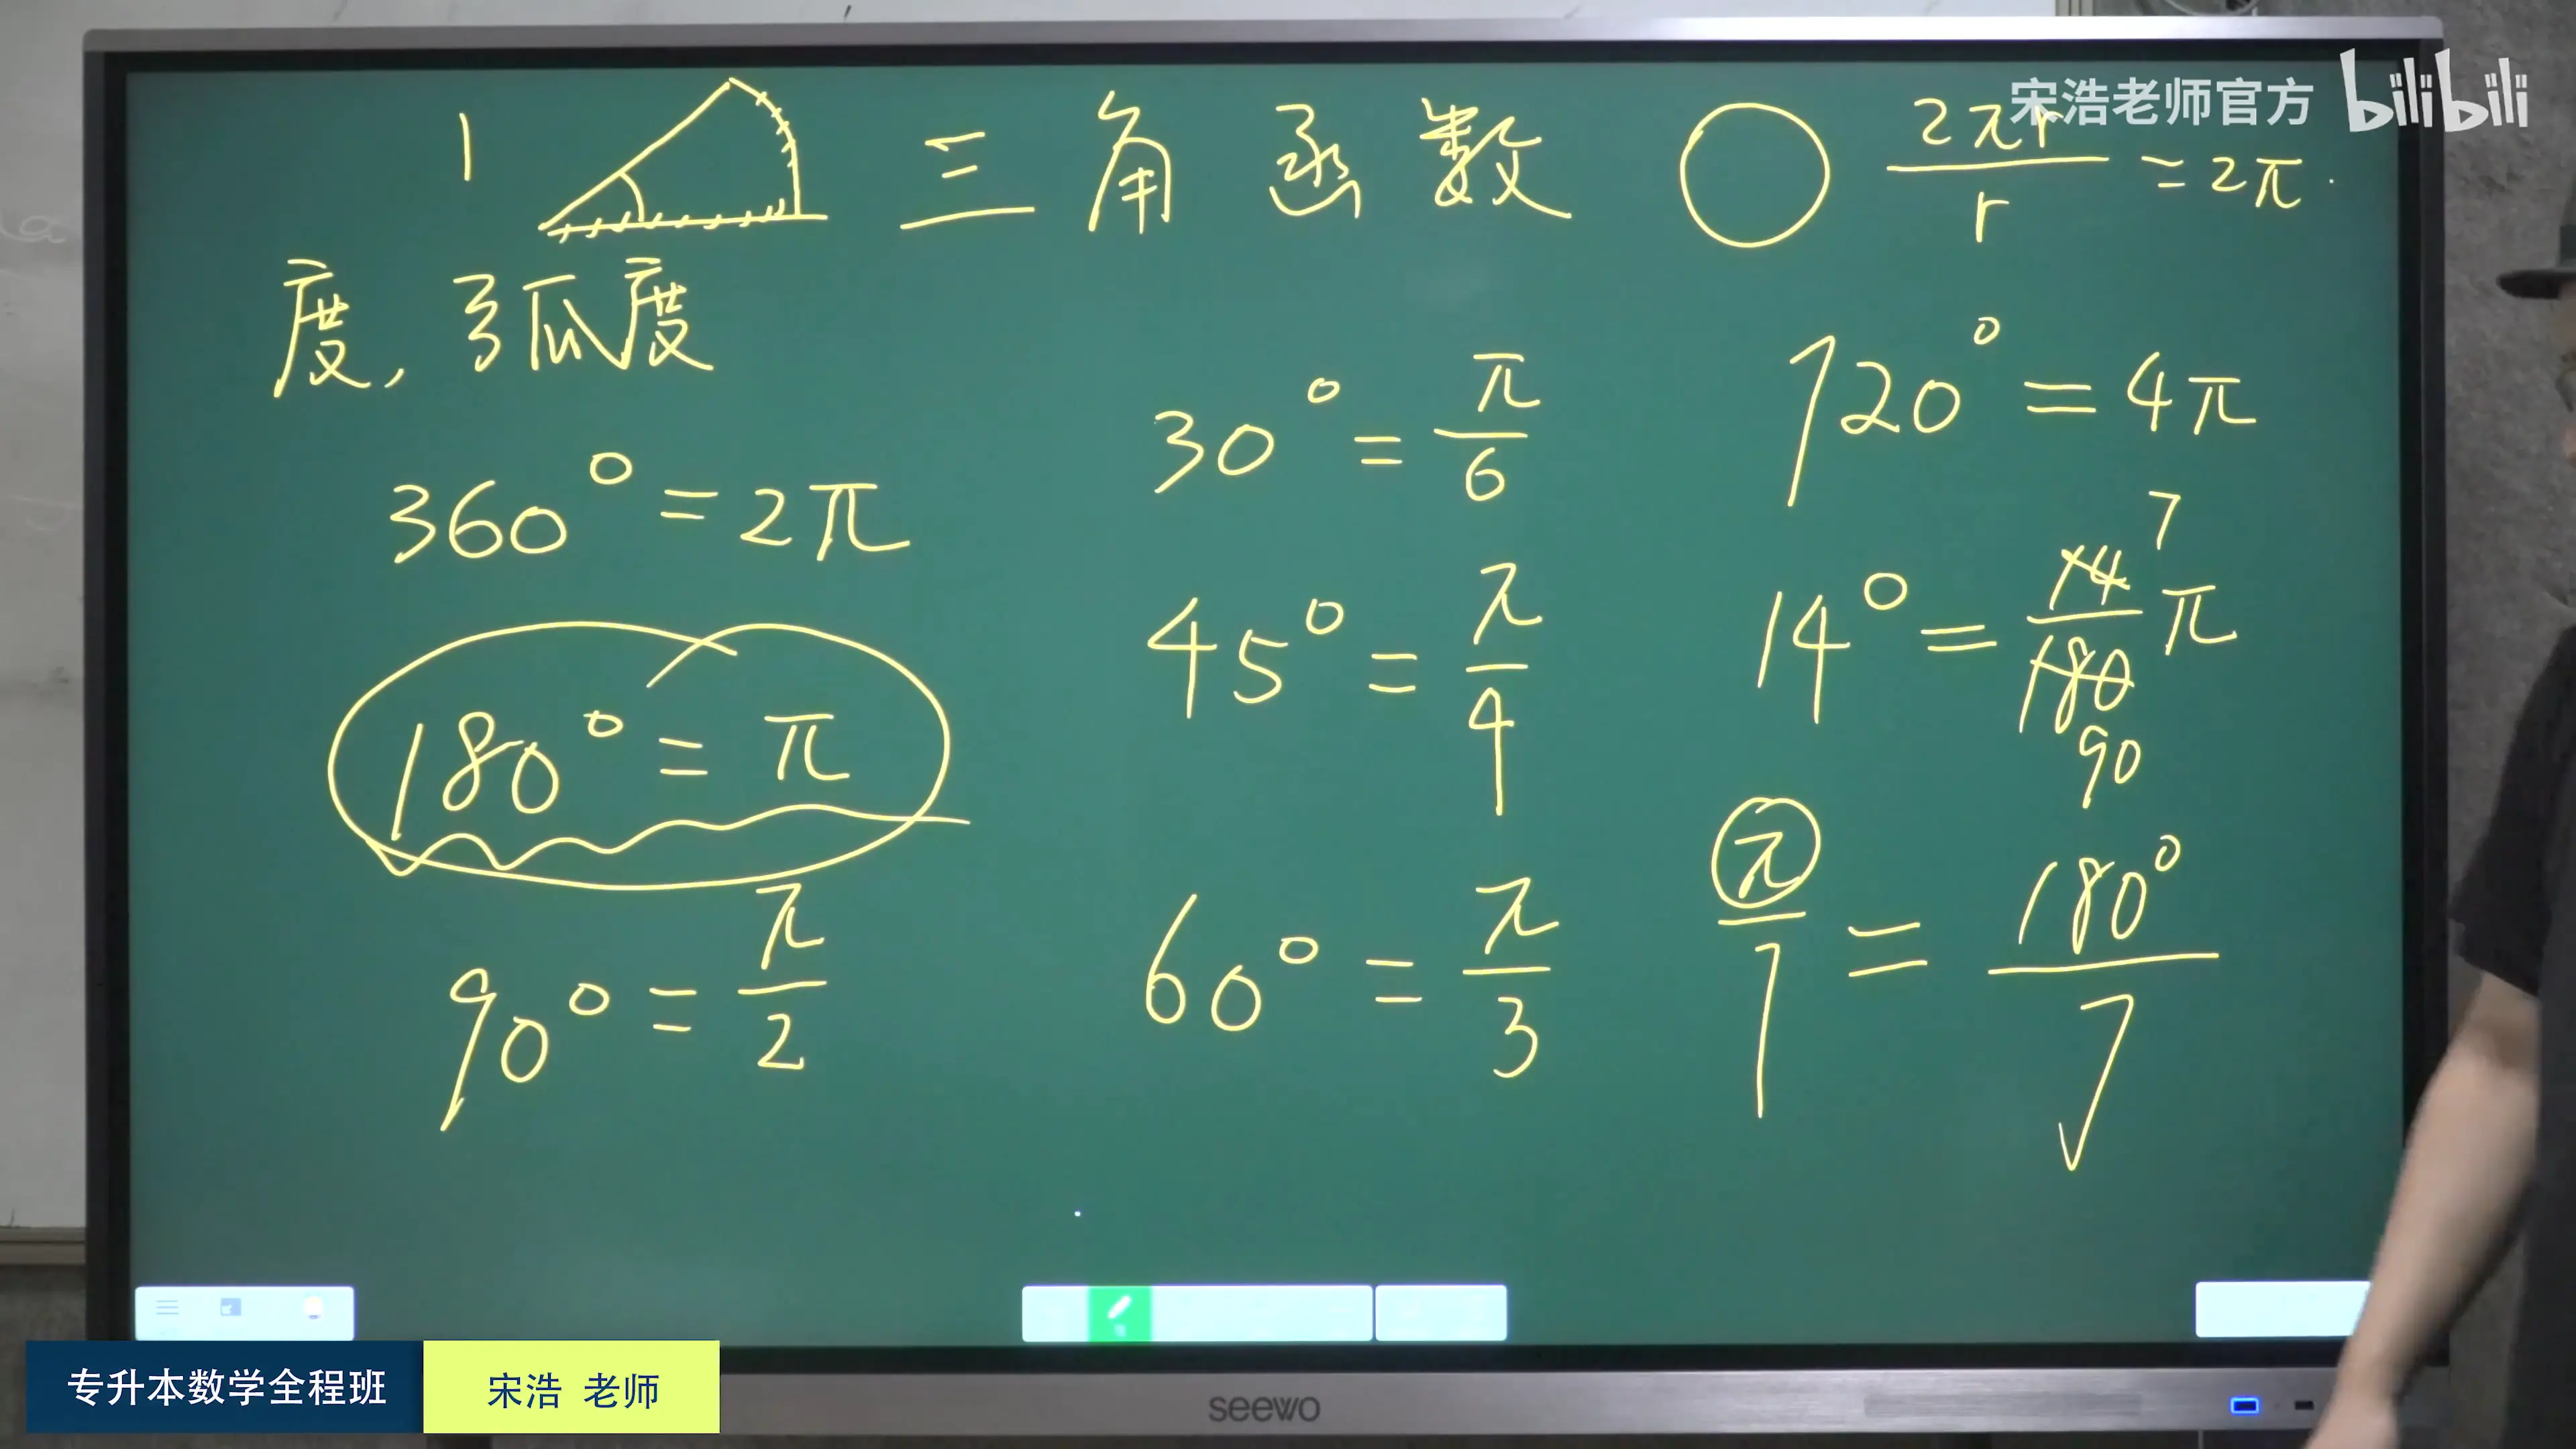 宋浩老师官方 bilibili
1 三角函数 2πr/r = 2π.
度, 弧度
360° = 2π
180° = π
90° = π/2
30° = π/6
45° = π/4
60° = π/3
720° = 4π
7
14° = 14/180 π
90
π/7 = 180°/7
专升本数学全程班 宋浩 老师
seewo